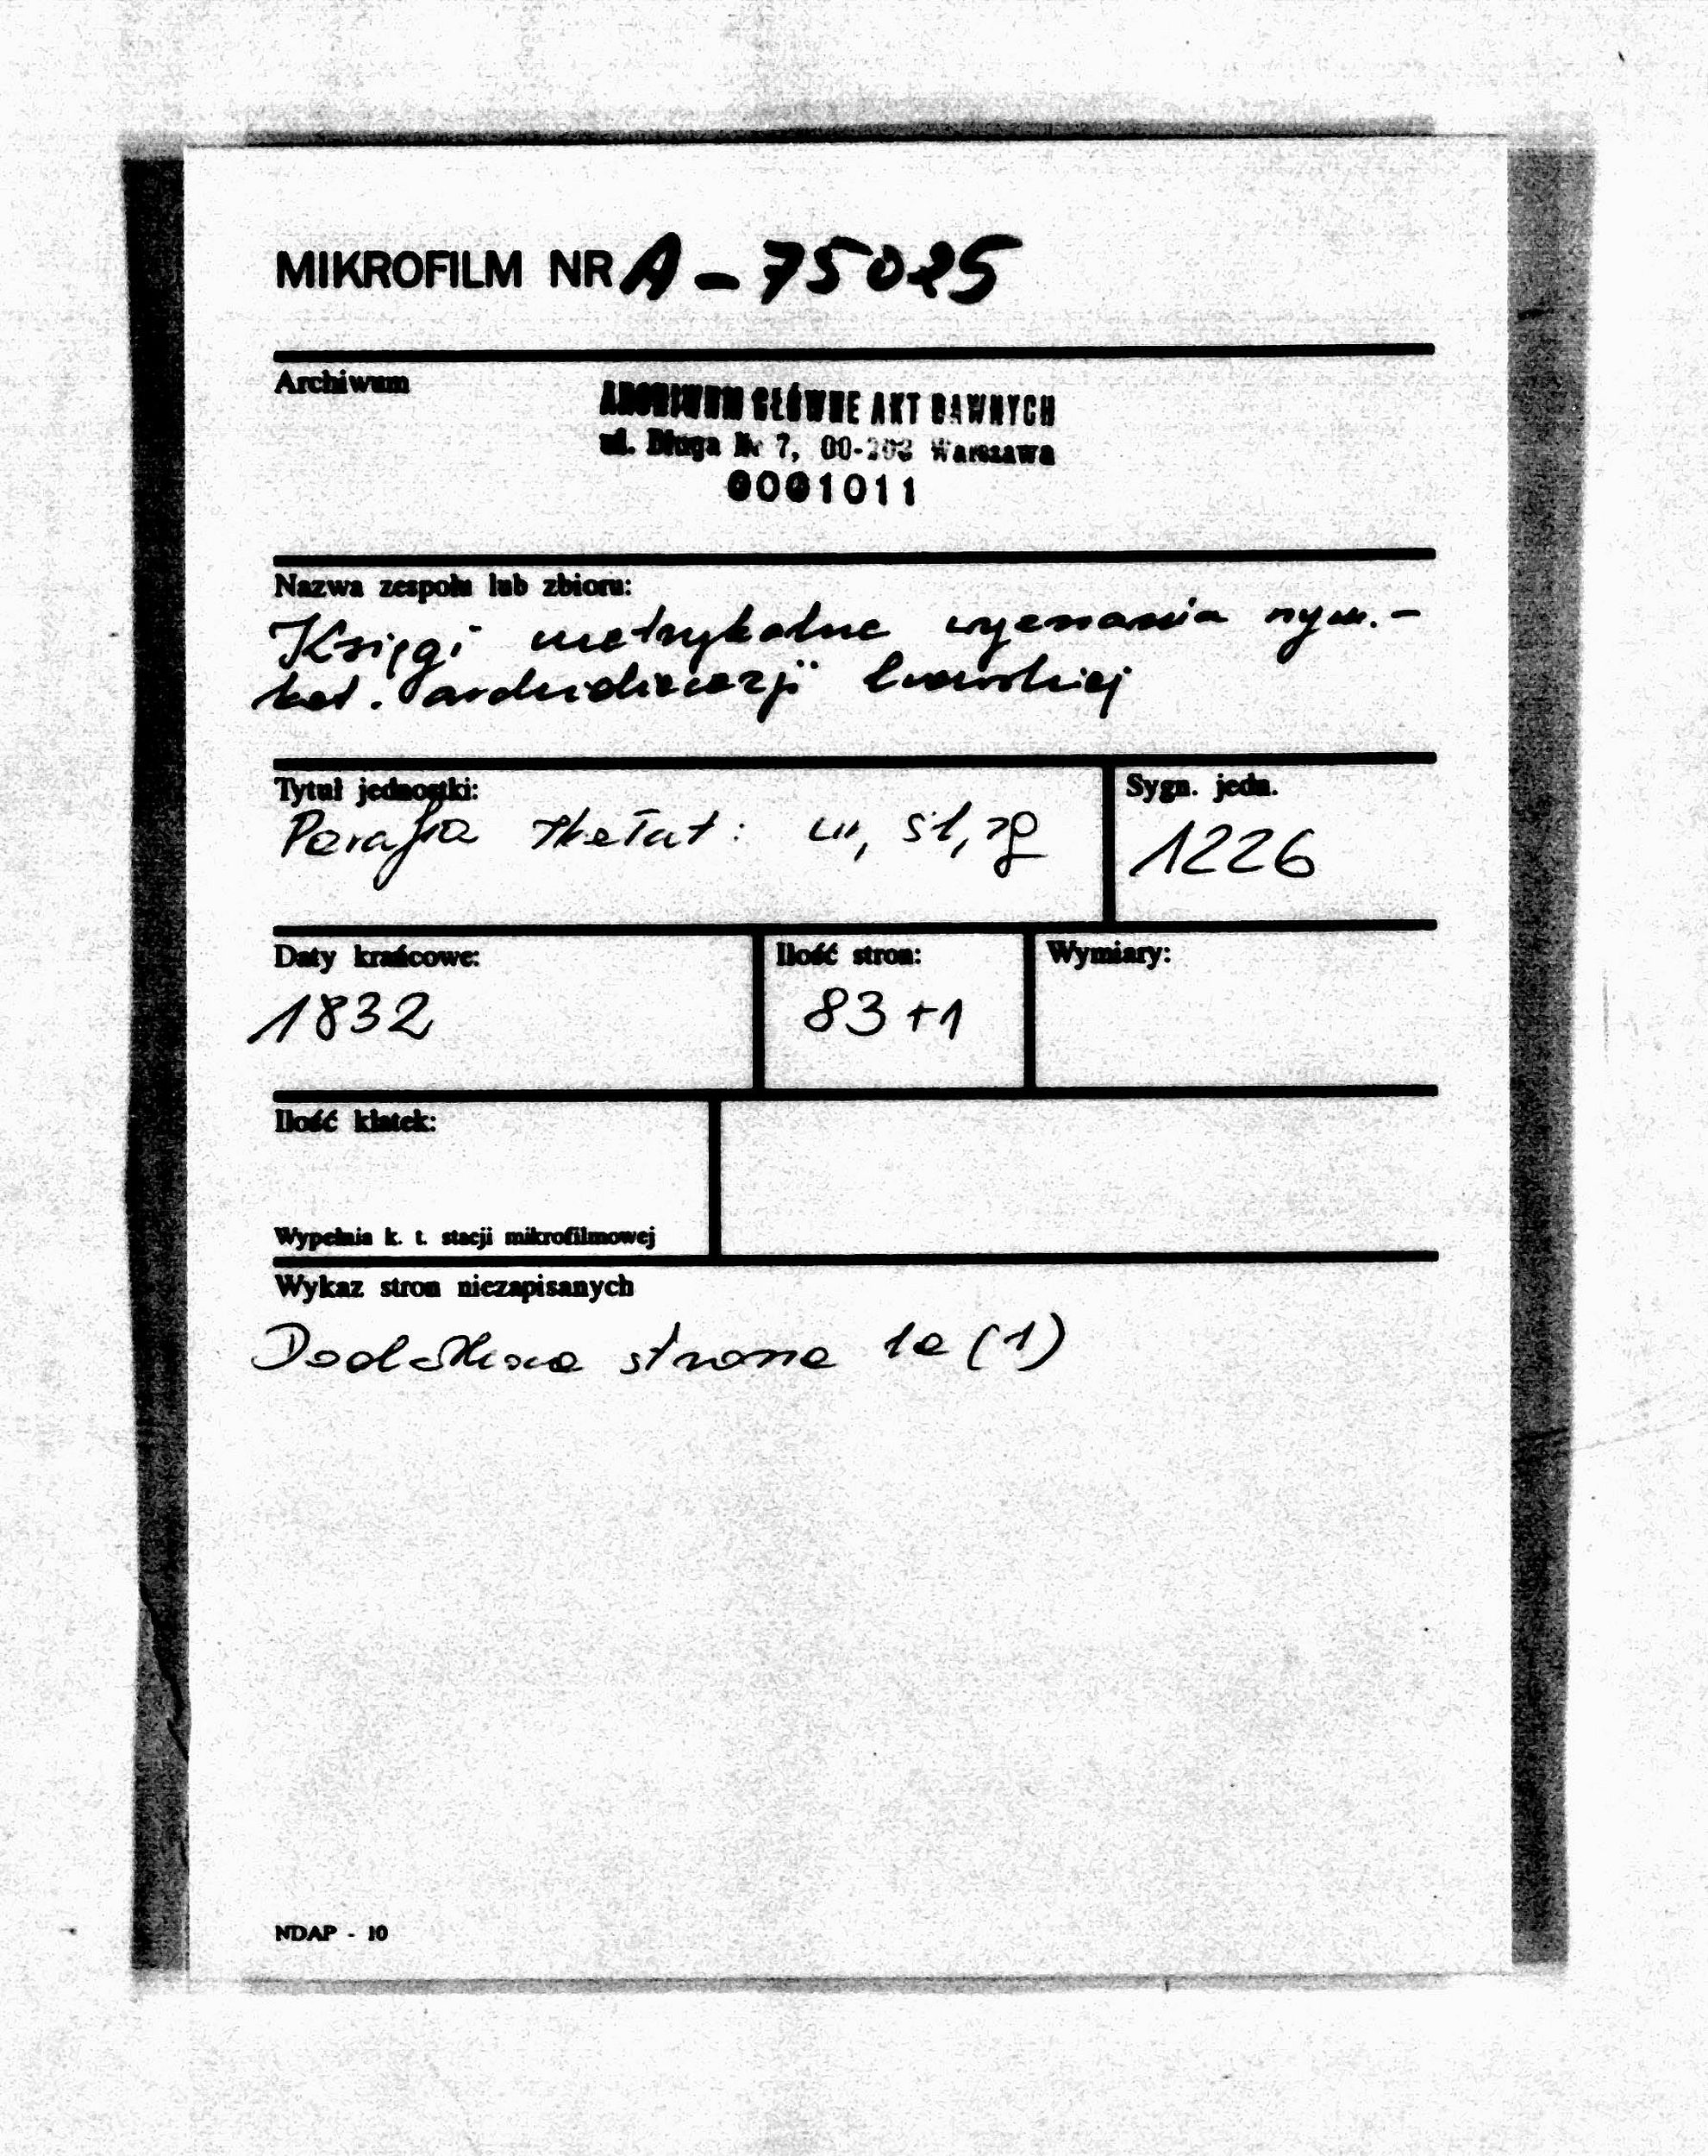 MIKROFILM NR A - 75025
Archiwum
ARCHIWUM GŁÓWNE AKT DAWNYCH
ul. Długa Nr 7, 00-263 Warszawa
0001011
Nazwa zespołu lub zbioru:
Księgi metrykalne wyznania rzym.-
kat. archidiecezji lwowskiej
Tytuł jednostki:
Parafia Skałat: ur, śl, zg
Sygn. jedn.
1226
Daty krańcowe:
1832
Ilość stron:
83+1
Wymiary:
Ilość klatek:
Wypełnia k. t. stacji mikrofilmowej
Wykaz stron niezapisanych
Dodatkowa strona 1a (1)
NDAP - 10